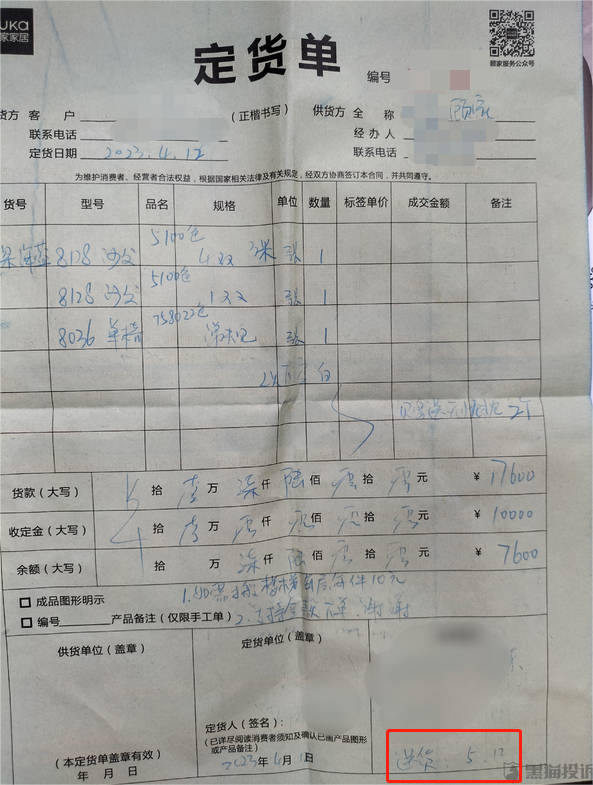 uka
家家居
顾家服务公众号
定货单
编号
货方 客 户 (正楷书写) 供货方 全 称
联系电话 经 办 人
定货日期 2023.4.1 联系电话
为维护消费者、经营者合法权益，根据国家相关法律及有关规定，经双方协商签订本合同，并共同遵守。
货号 型号 品名 规格 单位 数量 标签单价 成交金额 备注
8128 沙发 5100色 4双 3米 张 1
8128 沙发 5100色 1双 张 1
8036 单椅 758022色 张 1
以下空白
2个
货款（大写） 拾 壹 万 柒 仟 陆 佰 零 拾 零 元 ¥ 17600
收定金（大写） 拾 壹 万 零 仟 零 佰 零 拾 零 元 ¥ 10000
余额（大写） 拾 万 柒 仟 陆 佰 零 拾 零 元 ¥ 7600
1.如需搬楼梯每层每件10元
成品图形明示
编号 产品备注（仅限手工单） 2. 谢谢
供货单位（盖章） 定货单位（盖章）
定货人（签名）：
(已详尽阅读消费者须知及确认已画产品图形
或产品备注)
（本定货单盖章有效）
年 月 日 2023年4月1日
送货：5.12
黑猫投诉